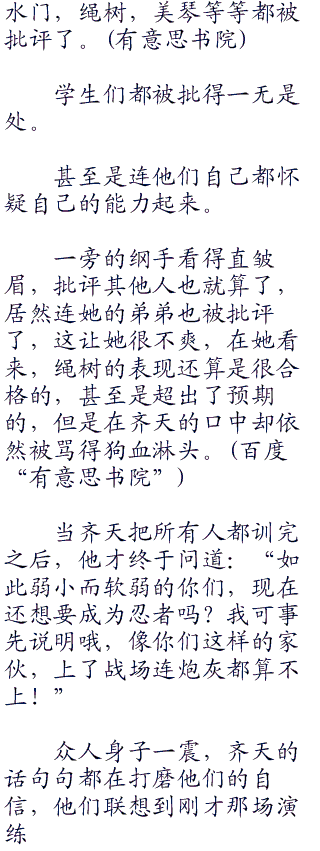 水门，绳树，美琴等等都被
批评了。（有意思书院）
学生们都被批得一无是
处。
甚至是连他们自己都怀
疑自己的能力起来。
一旁的纲手看得直皱
眉，批评其他人也就算了，
居然连她的弟弟也被批评
了，这让她很不爽，在她看
来，绳树的表现还算是很合
格的，甚至是超出了预期
的，但是在齐天的口中却依
然被骂得狗血淋头。（百度
“有意思书院”）
当齐天把所有人都训完
之后，他才终于问道：“如
此弱小而软弱的你们，现在
还想要成为忍者吗？我可事
先说明哦，像你们这样的家
伙，上了战场连炮灰都算不
上！”
众人身子一震，齐天的
话句句都在打磨他们的自
信，他们联想到刚才那场演
练